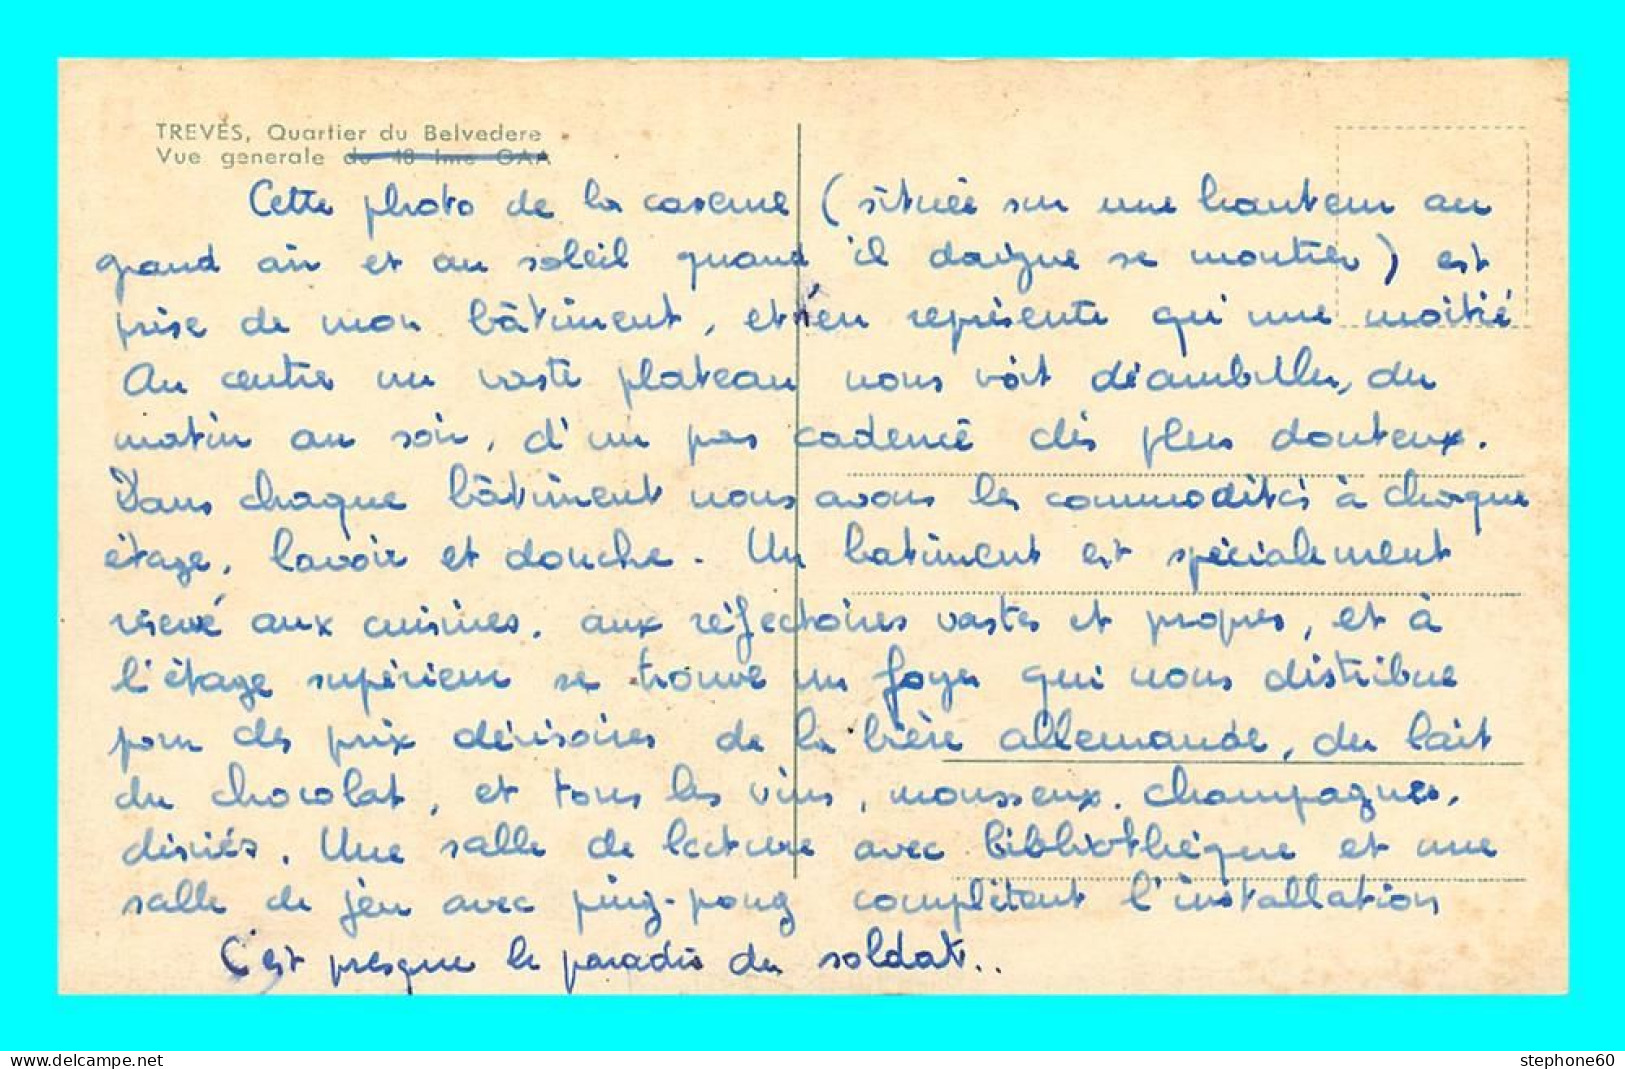 TREVES, Quartier du Belvedere
Vue generale du 48 Ime GAA
Cette photo de la caserne (située sur une hauteur au
grand air et au soleil quand il daigne se montrer) est
prise de mon bâtiment, et n'en représente qu'une moitié
Au centre un vaste plateau nous voit déambuler, du
matin au soir, d'un pas cadencé des plus douteux.
Dans chaque bâtiment nous avons les commodités à chaque
étage, lavoir et douche. Un batiment est spécialement
réservé aux cuisines, aux réfectoires vastes et propres, et à
l'étage supérieur se trouve un foyer qui nous distribue
pour des prix dérisoires de la bière allemande, du lait
du chocolat, et tous les vins, mousseux, champagnes,
désirés. Une salle de lecture avec bibliothèque et une
salle de jeu avec ping-pong complètent l'installation
C'est presque le paradis du soldat..
www.delcampe.net
stephone60